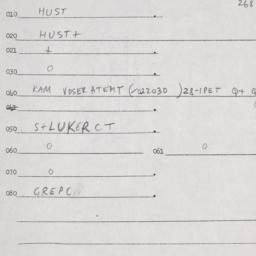 268
010 HUST
020 HUST+
021 +
030 0
040 KAM VOSER ATEMT (022030 )28-1PET Q+
050 S+LUKER CT
060 0 061 0
070 0
080 GREPC